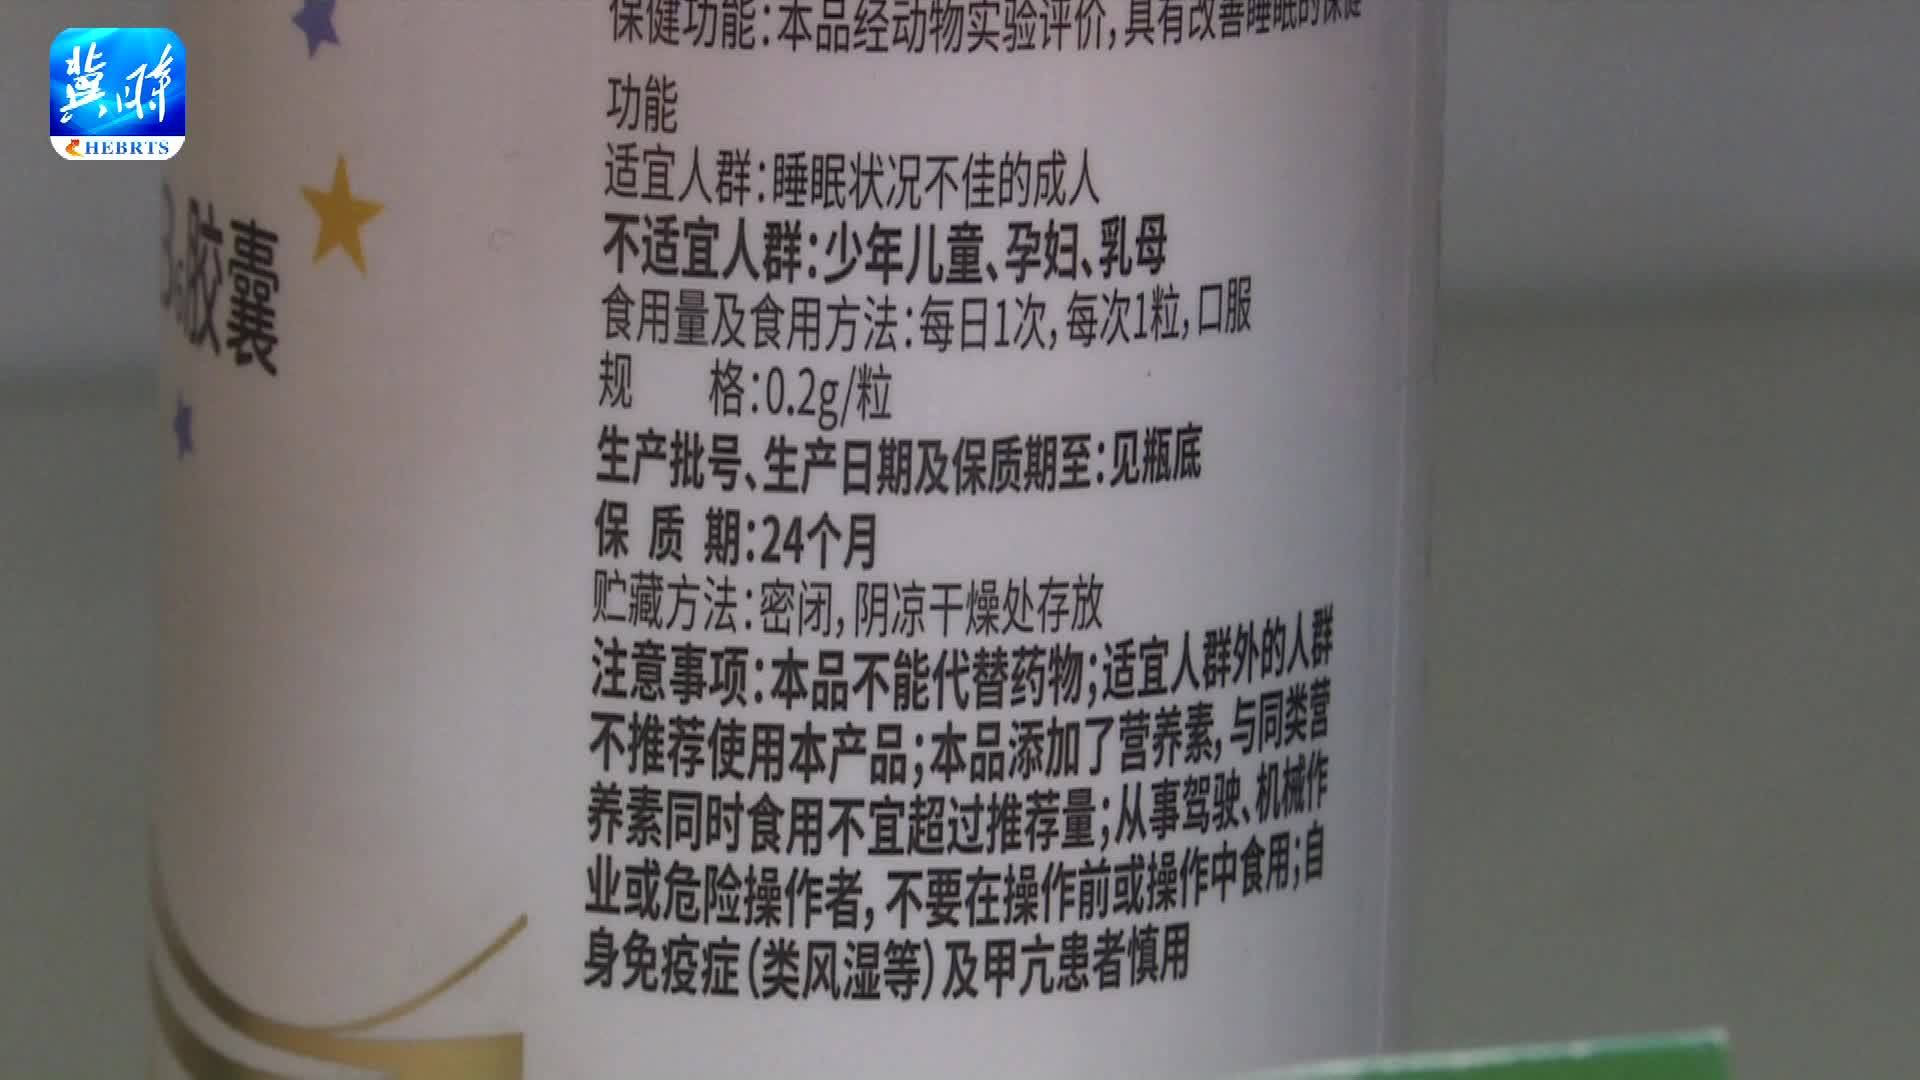 冀时
HEBRTS
B6胶囊
保健功能:本品经动物实验评价,具有改善睡眠的保健
功能
适宜人群:睡眠状况不佳的成人
不适宜人群:少年儿童、孕妇、乳母
食用量及食用方法:每日1次,每次1粒,口服
规 格:0.2g/粒
生产批号、生产日期及保质期至:见瓶底
保 质 期:24个月
贮藏方法:密闭,阴凉干燥处存放
注意事项:本品不能代替药物;适宜人群外的人群
不推荐使用本产品;本品添加了营养素,与同类营
养素同时食用不宜超过推荐量;从事驾驶、机械作
业或危险操作者,不要在操作前或操作中食用;自
身免疫症(类风湿等)及甲亢患者慎用